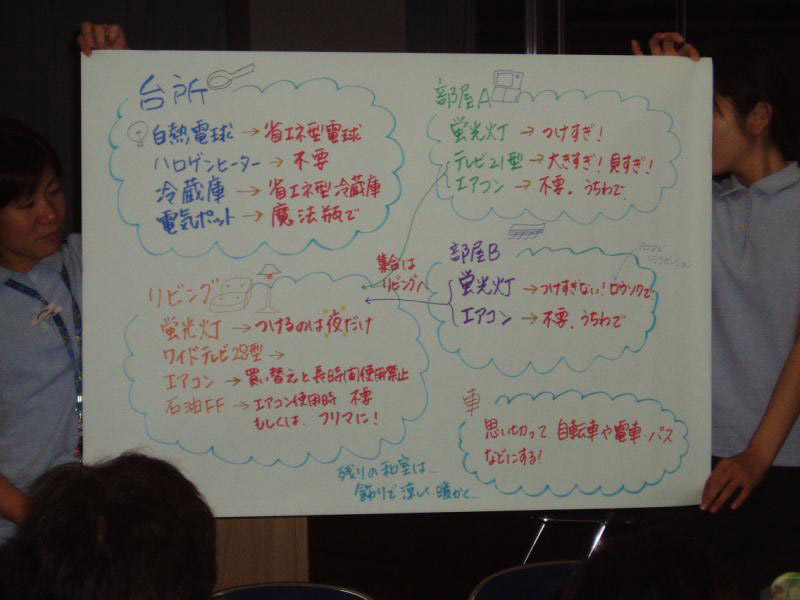 台所
白熱電球→省エネ型電球
ハロゲンヒーター→不要
冷蔵庫→省エネ型冷蔵庫
電気ポット→魔法瓶で
部屋A
蛍光灯→つけすぎ!
テレビ21型→大きすぎ!見すぎ!
エアコン→不要。うちわで
集合は
リビングへ
部屋B
蛍光灯→つけすぎない!ロウソクで
エアコン→不要、うちわで
リビング
蛍光灯→つけるのは夜だけ
ワイドテレビ28型→
エアコン→買い替えと長時間使用禁止
石油FF→エアコン使用時 不要
もしくは、フリマに!
車
思い切って、自転車や電車・バス
などにする!
残りの和室は…
飾りで涼しく暖かく…